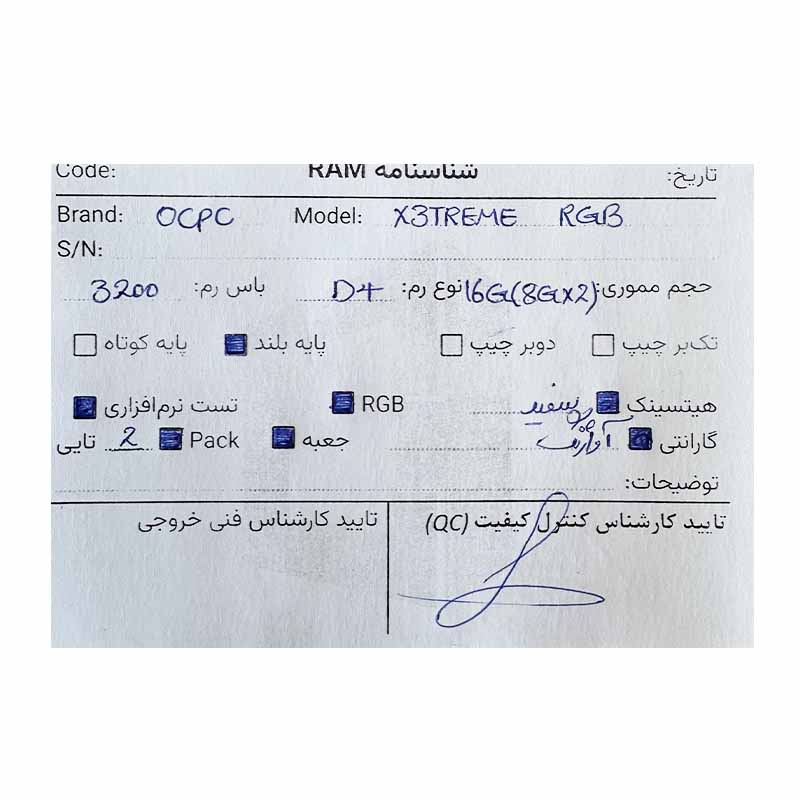 تاریخ: شناسنامه RAM Code:
Brand: OCPC Model: X3TREME RGB
S/N:
حجم مموری: 16G(8Gx2) نوع رم: D4 باس رم: 3200
تک‌بر چیپ دوبر چیپ پایه بلند پایه کوتاه
هیتسینک سفید RGB تست نرم‌افزاری
گارانتی آواژنگ جعبه Pack 2 تایی
توضیحات:
تایید کارشناس کنترل کیفیت (QC) تایید کارشناس فنی خروجی